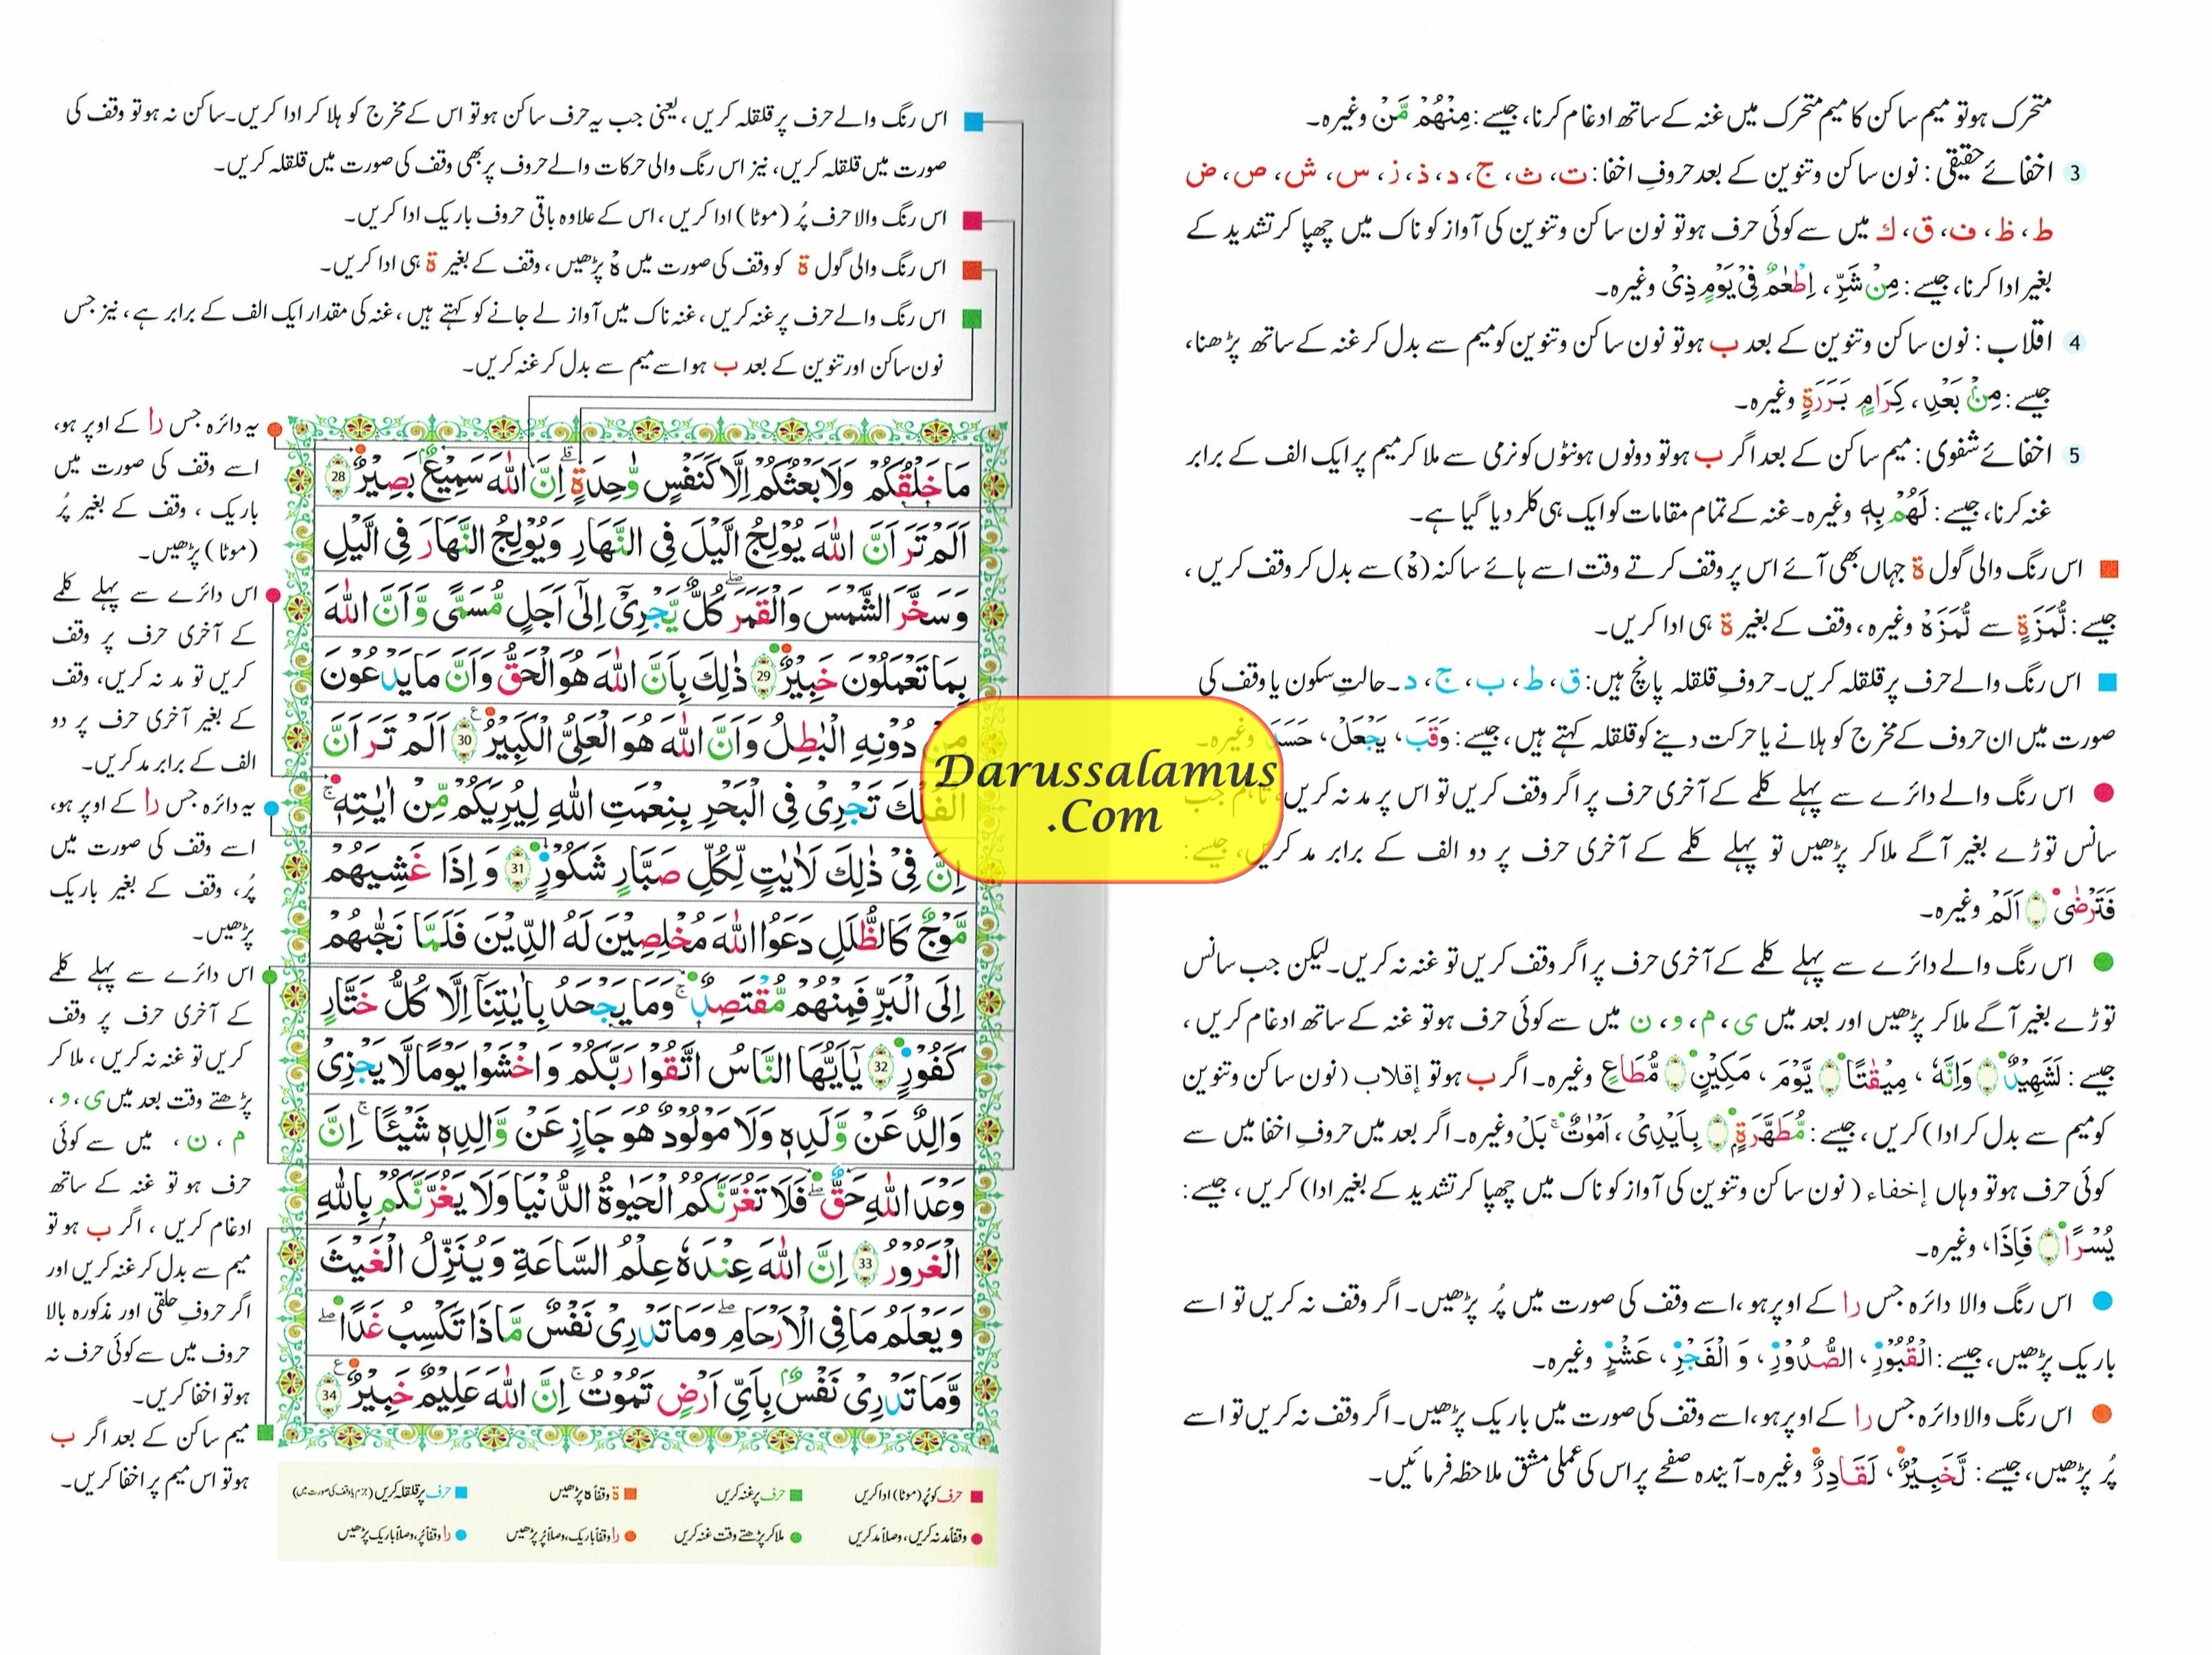 متحرک ہو تو میم ساکن کا میم متحرک میں غنہ کے ساتھ ادغام کرنا، جیسے: مِنْهُمْ مَّنْ وغیرہ۔
3 اخفائے حقیقی: نون ساکن وتنوین کے بعد حروفِ اخفا: ت، ث، ج، د، ذ، ز، س، ش، ص، ض
ط، ظ، ف، ق، ك میں سے کوئی حرف ہو تو نون ساکن وتنوین کی آواز کو ناک میں چھپا کر تشدید کے
بغیر ادا کرنا، جیسے: مِنْ شَرِّ، اِطْعٰمٌ فِیْ یَوْمٍ ذِیْ وغیرہ۔
4 اقلاب: نون ساکن وتنوین کے بعد ب ہو تو نون ساکن وتنوین کو میم سے بدل کر غنہ کے ساتھ پڑھنا،
جیسے: مِنْۢ بَعْدِ، كِرَامٍۭ بَرَرَةٍ وغیرہ۔
5 اخفائے شفوی: میم ساکن کے بعد اگر ب ہو تو دونوں ہونٹوں کو نرمی سے ملا کر میم پر ایک الف کے برابر
غنہ کرنا، جیسے: لَهُمْ بِهٖ وغیرہ۔ غنہ کے تمام مقامات کو ایک ہی کلر دیا گیا ہے۔
اس رنگ والی گول ة جہاں بھی آئے اس پر وقف کرتے وقت اسے ہائے ساکنہ (هْ) سے بدل کر وقف کریں،
جیسے: لُّمَزَةٍ سے لُّمَزَهْ وغیرہ، وقف کے بغیر ة ہی ادا کریں۔
اس رنگ والے حرف پر قلقلہ کریں۔ حروفِ قلقلہ پانچ ہیں: ق، ط، ب، ج، د۔ حالتِ سکون یا وقف کی
صورت میں ان حروف کے مخرج کو ہلانے یا حرکت دینے کو قلقلہ کہتے ہیں، جیسے: وَقَبَ، یَجْعَلْ، حَسَدَ وغیرہ۔
اس رنگ والے دائرے سے پہلے کلمے کے آخری حرف پر اگر وقف کریں تو اس پر مد نہ کریں، تاہم جب
سانس توڑے بغیر آگے ملا کر پڑھیں تو پہلے کلمے کے آخری حرف پر دو الف کے برابر مد کریں، جیسے:
فَتَرْضٰى اَلَمْ وغیرہ۔
اس رنگ والے دائرے سے پہلے کلمے کے آخری حرف پر اگر وقف کریں تو غنہ نہ کریں۔ لیکن جب سانس
توڑے بغیر آگے ملا کر پڑھیں اور بعد میں ی، م، و، ن میں سے کوئی حرف ہو تو غنہ کے ساتھ ادغام کریں،
جیسے: لَشَهِیْدٌ وَاِنَّهٗ، مِیْقٰتًا یَّوْمَ، مَكِیْنٍ مُّطَاعٍ وغیرہ۔ اگر ب ہو تو إقلاب (نون ساکن وتنوین
کو میم سے بدل کر ادا) کریں، جیسے: مُّطَهَّرَةٍۭ بِاَیْدِیْ، اَمْوَاتٌ بَلْ وغیرہ۔ اگر بعد میں حروفِ اخفا میں سے
کوئی حرف ہو تو وہاں إخفاء (نون ساکن وتنوین کی آواز کو ناک میں چھپا کر تشدید کے بغیر ادا) کریں، جیسے:
یُسْرًا فَاِذَا، وغیرہ۔
اس رنگ والا دائرہ جس را کے اوپر ہو، اسے وقف کی صورت میں پُر پڑھیں۔ اگر وقف نہ کریں تو اسے
باریک پڑھیں، جیسے: الْقُبُوْرِ، الصُّدُوْرِ، وَ الْفَجْرِ، عَشْرٍ وغیرہ۔
اس رنگ والا دائرہ جس را کے اوپر ہو، اسے وقف کی صورت میں باریک پڑھیں۔ اگر وقف نہ کریں تو اسے
پُر پڑھیں، جیسے: لَّخَبِیْرٌ، لَقَادِرٌ وغیرہ۔ آیندہ صفحے پر اس کی عملی مشق ملاحظہ فرمائیں۔
Darussalamus
.Com
اس رنگ والے حرف پر قلقلہ کریں، یعنی جب یہ حرف ساکن ہو تو اس کے مخرج کو ہلا کر ادا کریں۔ ساکن نہ ہو تو وقف کی
صورت میں قلقلہ کریں، نیز اس رنگ والی حرکات والے حروف پر بھی وقف کی صورت میں قلقلہ کریں۔
اس رنگ والا حرف پُر (موٹا) ادا کریں، اس کے علاوہ باقی حروف باریک ادا کریں۔
اس رنگ والی گول ة کو وقف کی صورت میں هْ پڑھیں، وقف کے بغیر ة ہی ادا کریں۔
اس رنگ والے حرف پر غنہ کریں، غنہ ناک میں آواز لے جانے کو کہتے ہیں، غنہ کی مقدار ایک الف کے برابر ہے، نیز جس
نون ساکن اور تنوین کے بعد ب ہو اسے میم سے بدل کر غنہ کریں۔
مَا خَلْقُكُمْ وَلَا بَعْثُكُمْ اِلَّا كَنَفْسٍ وَّاحِدَةٍ ؕ اِنَّ اللّٰهَ سَمِیْعٌۢ بَصِیْرٌ 28
اَلَمْ تَرَ اَنَّ اللّٰهَ یُوْلِجُ الَّیْلَ فِی النَّهَارِ وَیُوْلِجُ النَّهَارَ فِی الَّیْلِ
وَسَخَّرَ الشَّمْسَ وَالْقَمَرَ ؗ كُلٌّ یَّجْرِیْۤ اِلٰۤى اَجَلٍ مُّسَمًّى وَّاَنَّ اللّٰهَ
بِمَا تَعْمَلُوْنَ خَبِیْرٌ 29 ذٰلِكَ بِاَنَّ اللّٰهَ هُوَ الْحَقُّ وَاَنَّ مَا یَدْعُوْنَ
مِنْ دُوْنِهِ الْبٰطِلُ وَاَنَّ اللّٰهَ هُوَ الْعَلِیُّ الْكَبِیْرُ 30 اَلَمْ تَرَ اَنَّ
الْفُلْكَ تَجْرِیْ فِی الْبَحْرِ بِنِعْمَتِ اللّٰهِ لِیُرِیَكُمْ مِّنْ اٰیٰتِهٖ ؕ
اِنَّ فِیْ ذٰلِكَ لَاٰیٰتٍ لِّكُلِّ صَبَّارٍ شَكُوْرٍ 31 وَ اِذَا غَشِیَهُمْ
مَّوْجٌ كَالظُّلَلِ دَعَوُا اللّٰهَ مُخْلِصِیْنَ لَهُ الدِّیْنَ فَلَمَّا نَجّٰىهُمْ
اِلَى الْبَرِّ فَمِنْهُمْ مُّقْتَصِدٌ ؕ وَمَا یَجْحَدُ بِاٰیٰتِنَاۤ اِلَّا كُلُّ خَتَّارٍ
كَفُوْرٍ 32 یٰۤاَیُّهَا النَّاسُ اتَّقُوْا رَبَّكُمْ وَاخْشَوْا یَوْمًا لَّا یَجْزِیْ
وَالِدٌ عَنْ وَّلَدِهٖ وَلَا مَوْلُوْدٌ هُوَ جَازٍ عَنْ وَّالِدِهٖ شَیْـًٔا ؕ اِنَّ
وَعْدَ اللّٰهِ حَقٌّ فَلَا تَغُرَّنَّكُمُ الْحَیٰوةُ الدُّنْیَا وَلَا یَغُرَّنَّكُمْ بِاللّٰهِ
الْغَرُوْرُ 33 اِنَّ اللّٰهَ عِنْدَهٗ عِلْمُ السَّاعَةِ وَیُنَزِّلُ الْغَیْثَ
وَیَعْلَمُ مَا فِی الْاَرْحَامِ ؕ وَمَا تَدْرِیْ نَفْسٌ مَّاذَا تَكْسِبُ غَدًا ؕ
وَّمَا تَدْرِیْ نَفْسٌۢ بِاَیِّ اَرْضٍ تَمُوْتُ ؕ اِنَّ اللّٰهَ عَلِیْمٌ خَبِیْرٌ 34
یہ دائرہ جس را کے اوپر ہو،
اسے وقف کی صورت میں
باریک، وقف کے بغیر پُر
(موٹا) پڑھیں۔
اس دائرے سے پہلے کلمے
کے آخری حرف پر وقف
کریں تو مد نہ کریں، وقف
کے بغیر آخری حرف پر دو
الف کے برابر مد کریں۔
یہ دائرہ جس را کے اوپر ہو،
اسے وقف کی صورت میں
پُر، وقف کے بغیر باریک
پڑھیں۔
اس دائرے سے پہلے کلمے
کے آخری حرف پر وقف
کریں تو غنہ نہ کریں، ملا کر
پڑھتے وقت بعد میں ی، و،
م، ن، میں سے کوئی
حرف ہو تو غنہ کے ساتھ
ادغام کریں، اگر ب ہو تو
میم سے بدل کر غنہ کریں اور
اگر حروفِ حلقی اور مذکورہ بالا
حروف میں سے کوئی حرف نہ
ہو تو اخفا کریں۔
میم ساکن کے بعد اگر ب
ہو تو اس میم پر اخفا کریں۔
حرف کو پُر (موٹا) ادا کریں حرف پر غنہ کریں ة وقفاً ه پڑھیں حرف پر قلقلہ کریں (جزم یا وقف کی صورت میں)
وقفاً مد نہ کریں، وصلاً مد کریں ملا کر پڑھتے وقت غنہ کریں را وقفاً باریک، وصلاً پُر پڑھیں را وقفاً پُر، وصلاً باریک پڑھیں